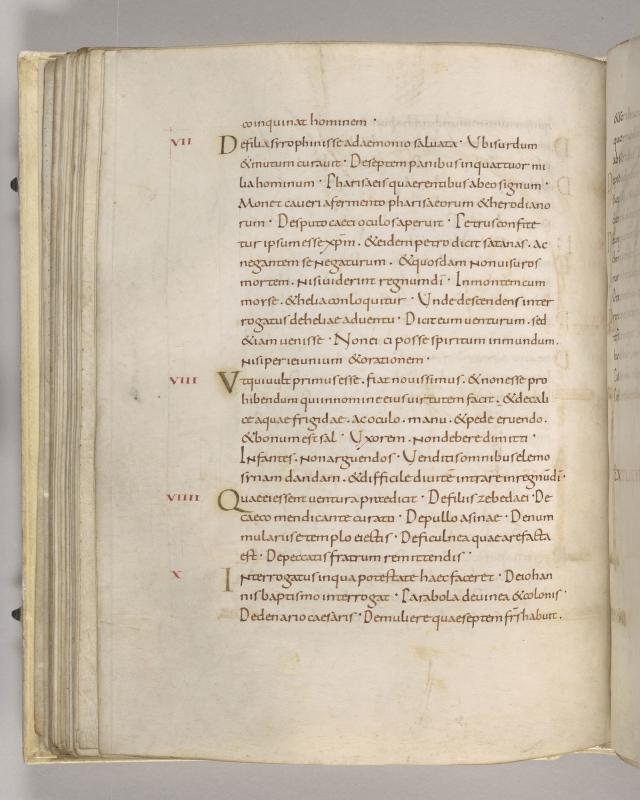 coinquinat hominem ·
VII Defilia syrophinissae a daemonio saluata · Ubi surdum
& mutum curauit · De septem panibus in quattuor mi
lia hominum · Pharisaeis quaerentibus ab eo signum ·
Monet caueri a fermento pharisaeorum & herodiano
rum · Desputo caeci oculos aperuit · Petrus confite
tur ipsum esse xp̄m · & eidem petro dicit satanas · Ac
negantem se negaturum · & quosdam non uisuros
mortem · nisi uiderint regnum dī · In monte cum
moyse · & helia conloquitur · Unde descendens inter
rogatus de heliae aduentu · Dicit eum uenturum · sed
& iam uenisse · Non eici posse spiritum inmundum ·
nisi per ieiunium & orationem ·
VIII Ut qui uult primus esse · fiat nouissimus · & non esse pro
hibendum qui in nomine eius uirtutem facit · & de cali
ce aquae frigidae · ac oculo · manu · & pede eruendo ·
& bonum est sal · Uxorem · non debere dimitti ·
Infantes · non arguendos · Uenditis omnibus elemo
synam dandam · & difficile diuitē intrare in regnū dī ·
VIIII Quae ei essent uentura praedicit · De filiis zebedaei · De
caeco mendicante curato · De pullo asinae · De num
mulariis e templo eiectis · De ficulnea quae arefacta
est · De peccatis fratrum remittendis ·
X Interrogatus in qua potestate haec faceret · De iohan
nis baptismo interrogat · Parabola de uinea & colonis ·
De denario caesaris · De muliere quae septem fr̄s habuit ·